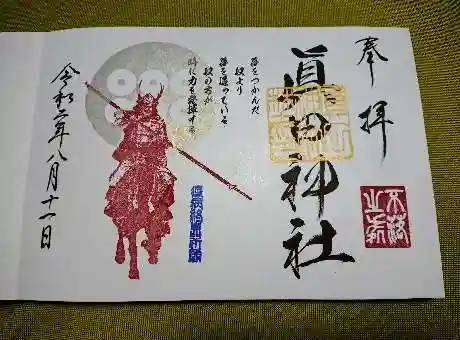 奉拝
眞田神社
不落
之祈
夢をつかんだ
奴より
夢を追っている
奴の方が
時に力を発揮する
令和二年八月十一日